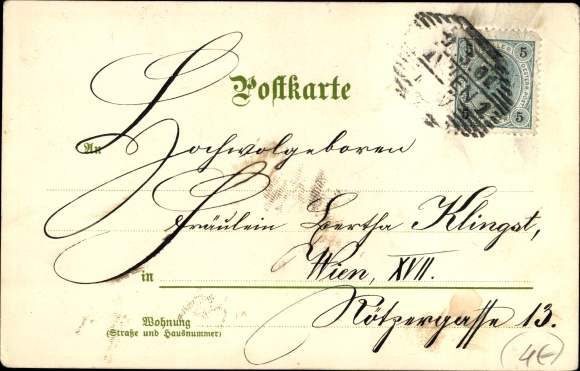 Postkarte
An Hochwolgeboren
Fräulein Bertha Klingst,
in Wien, XVII.
Rötzergasse 13.
Wohnung
(Straße und Hausnummer)
5 5
5 5
4€